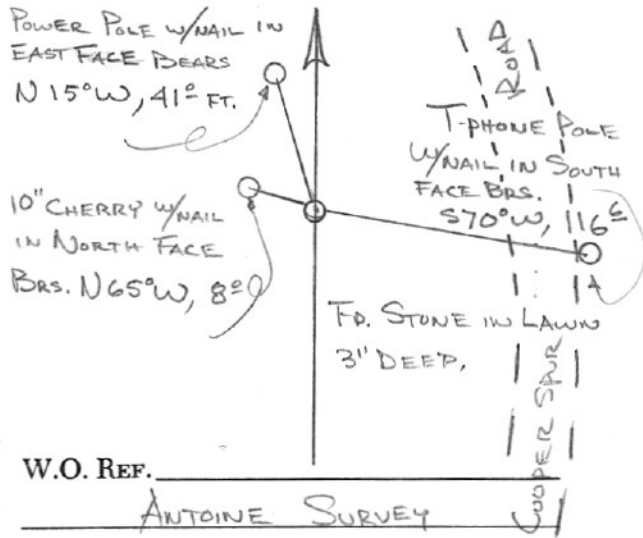 POWER POLE W/NAIL IN
EAST FACE BEARS
N 15°W, 41º FT.
10" CHERRY W/NAIL
IN NORTH FACE
BRS. N65°W, 8º
ROAD
T-PHONE POLE
W/NAIL IN SOUTH
FACE BRS.
S70°W, 116⁶
FD. STONE IN LAWN
3" DEEP,
COOPER SPUR
W.O. REF.
ANTOINE SURVEY